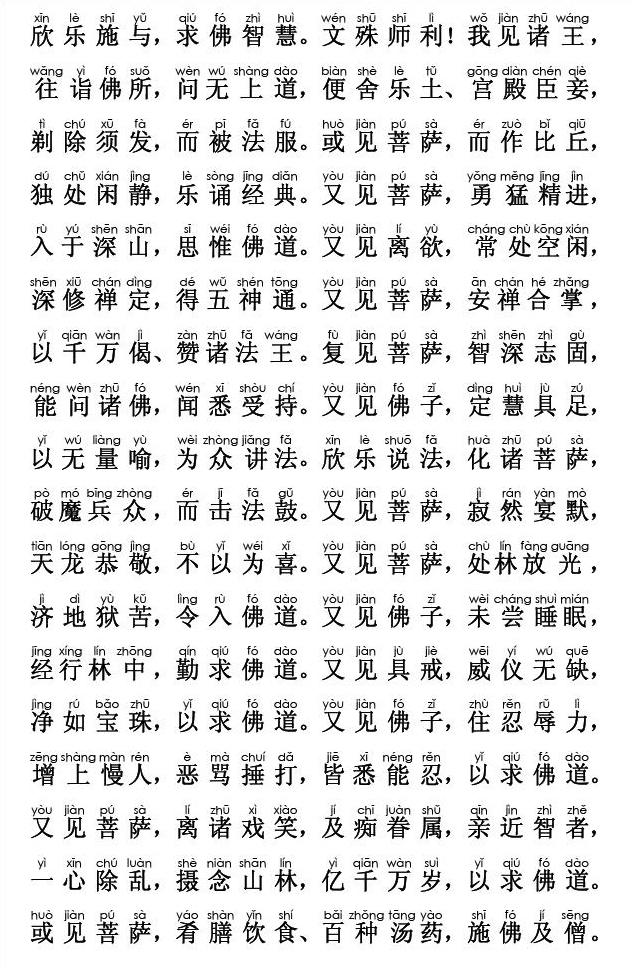 xīn lè shī yǔ qiú fó zhì huì wén shū shī lì wǒ jiàn zhū wáng
欣乐施与，求佛智慧。文殊师利！我见诸王，
wǎng yì fó suǒ wèn wú shàng dào biàn shè lè tǔ gōng diàn chén qiè
往诣佛所，问无上道，便舍乐土、宫殿臣妾，
tì chú xū fà ér pī fǎ fú huò jiàn pú sà ér zuò bǐ qiū
剃除须发，而被法服。或见菩萨，而作比丘，
dú chǔ xián jìng lè sòng jīng diǎn yòu jiàn pú sà yǒng měng jīng jìn
独处闲静，乐诵经典。又见菩萨，勇猛精进，
rù yú shēn shān sī wéi fó dào yòu jiàn lí yù cháng chǔ kōng xián
入于深山，思惟佛道。又见离欲，常处空闲，
shēn xiū chán dìng dé wǔ shén tōng yòu jiàn pú sà ān chán hé zhǎng
深修禅定，得五神通。又见菩萨，安禅合掌，
yǐ qiān wàn jì zàn zhū fǎ wáng fù jiàn pú sà zhì shēn zhì gù
以千万偈、赞诸法王。复见菩萨，智深志固，
néng wèn zhū fó wén xī shòu chí yòu jiàn fó zǐ dìng huì jù zú
能问诸佛，闻悉受持。又见佛子，定慧具足，
yǐ wú liàng yù wèi zhòng jiǎng fǎ xīn lè shuō fǎ huà zhū pú sà
以无量喻，为众讲法。欣乐说法，化诸菩萨，
pò mó bīng zhòng ér jī fǎ gǔ yòu jiàn pú sà jì rán yàn mò
破魔兵众，而击法鼓。又见菩萨，寂然宴默，
tiān lóng gōng jìng bù yǐ wéi xǐ yòu jiàn pú sà chù lín fàng guāng
天龙恭敬，不以为喜。又见菩萨，处林放光，
jì dì yù kǔ lìng rù fó dào yòu jiàn fó zǐ wèi cháng shuì mián
济地狱苦，令入佛道。又见佛子，未尝睡眠，
jīng xíng lín zhōng qín qiú fó dào yòu jiàn jù jiè wēi yí wú quē
经行林中，勤求佛道。又见具戒，威仪无缺，
jìng rú bǎo zhū yǐ qiú fó dào yòu jiàn fó zǐ zhù rěn rǔ lì
净如宝珠，以求佛道。又见佛子，住忍辱力，
zēng shàng màn rén è mà chuí dǎ jiē xī néng rěn yǐ qiú fó dào
增上慢人，恶骂捶打，皆悉能忍，以求佛道。
yòu jiàn pú sà lí zhū xì xiào jí chī juàn shǔ qīn jìn zhì zhě
又见菩萨，离诸戏笑，及痴眷属，亲近智者，
yì xīn chú luàn shè niàn shān lín yì qiān wàn suì yǐ qiú fó dào
一心除乱，摄念山林，亿千万岁，以求佛道。
huò jiàn pú sà yáo shàn yǐn shí bǎi zhǒng tāng yào shī fó jí sēng
或见菩萨，肴膳饮食、百种汤药，施佛及僧。